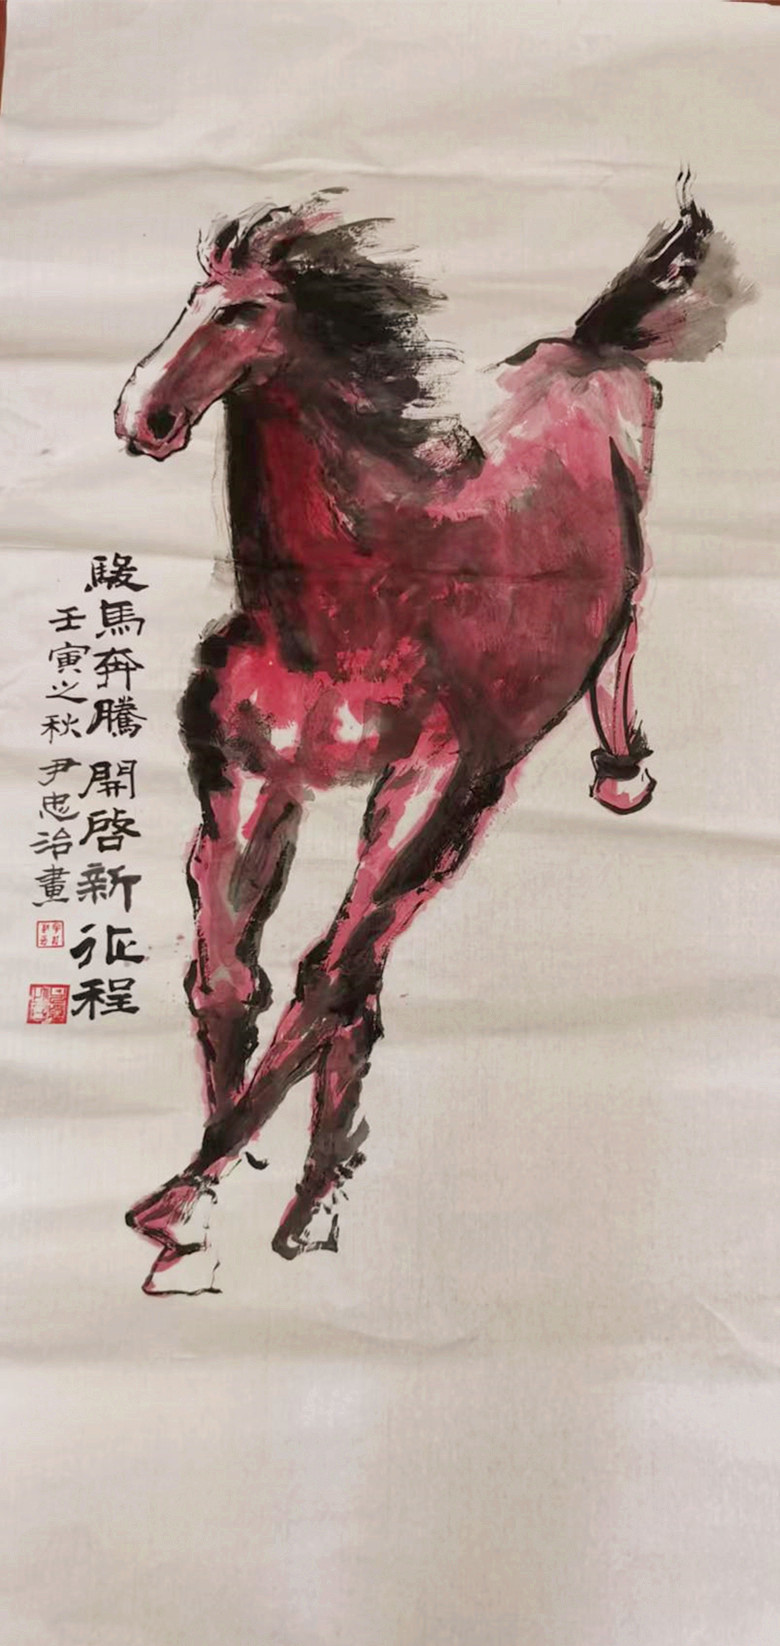 駿馬奔騰 開啓新征程
壬寅之秋 尹忠治畫